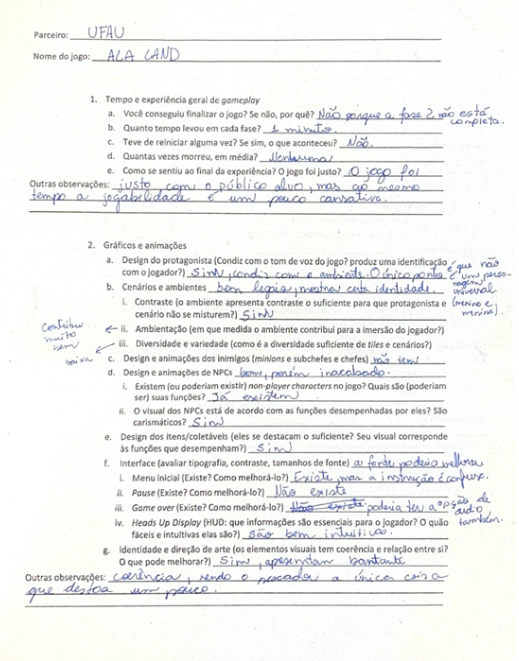 Parceiro: UFAU
Nome do jogo: ALA LAND
1. Tempo e experiência geral de gameplay
a. Você conseguiu finalizar o jogo? Se não, por quê? Não porque a fase 2 não está
completa.
b. Quanto tempo levou em cada fase? 1 minuto.
c. Teve de reiniciar alguma vez? Se sim, o que aconteceu? Não.
d. Quantas vezes morreu, em média? Nenhuma
e. Como se sentiu ao final da experiência? O jogo foi justo? O jogo foi
Outras observações: justo com o público alvo, mas ao mesmo
tempo a jogabilidade é um pouco cansativa.
2. Gráficos e animações
a. Design do protagonista (Condiz com o tom de voz do jogo? produz uma identificação
com o jogador?) Sim, condiz com o ambiente. O único ponto é que não
é um perso-
nagem
universal
(menino e
menina).
b. Cenários e ambientes bem legais, mostra certa identidade.
i. Contraste (o ambiente apresenta contraste o suficiente para que protagonista e
cenário não se misturem?) Sim
Contribui
muito
bem
ii. Ambientação (em que medida o ambiente contribui para a imersão do jogador?)
baixa
iii. Diversidade e variedade (como é a diversidade de tiles e cenários?)
c. Design e animações dos inimigos (minions e subchefes e chefes) não tem
d. Design e animações de NPCs bom, porém inacabado.
i. Existem (ou poderiam existir) non-player characters no jogo? Quais são (poderiam
ser) suas funções? Já existem
ii. O visual dos NPCs está de acordo com as funções desempenhadas por eles? São
carismáticos? Sim
e. Design dos itens/coletáveis (eles se destacam o suficiente? Seu visual corresponde
às funções que desempenham?) Sim
f. Interface (avaliar tipografia, contraste, tamanhos de fonte) a fonte poderia melhorar
i. Menu inicial (Existe? Como melhorá-lo?) Existe, mas a instrução é confusa.
ii. Pause (Existe? Como melhorá-lo?) Não existe
iii. Game over (Existe? Como melhorá-lo?) Não existe poderia ter a opção de
áudio
também.
iv. Heads Up Display (HUD: que informações são essenciais para o jogador? O quão
fáceis e intuitivas elas são?) São bem intuitivas.
g. Identidade e direção de arte (os elementos visuais tem coerência e relação entre si?
O que pode melhorar?) Sim, apresentam bastante
Outras observações: coerência, sendo o pescador a única coisa
que destoa um pouco.